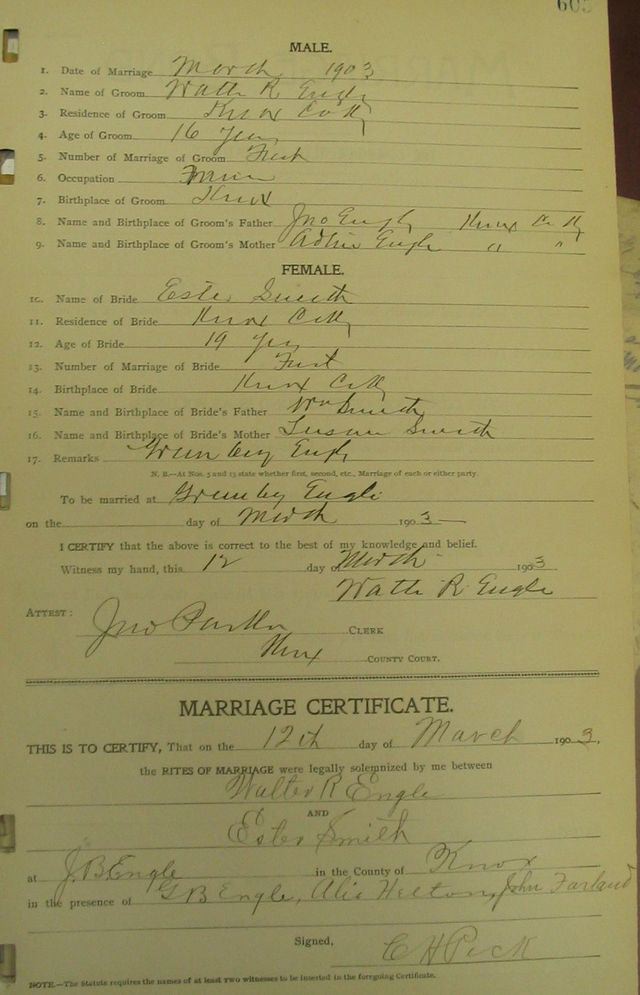 605
MALE.
1. Date of Marriage March 1903
2. Name of Groom Walter R Engle
3. Residence of Groom Knox Co Ky
4. Age of Groom 16 years
5. Number of Marriage of Groom First
6. Occupation
7. Birthplace of Groom Knox
8. Name and Birthplace of Groom's Father Jno Engle Knox Co Ky
9. Name and Birthplace of Groom's Mother Engle " "
FEMALE.
10. Name of Bride Ester Smith
11. Residence of Bride Knox Co Ky
12. Age of Bride 19 years
13. Number of Marriage of Bride First
14. Birthplace of Bride Knox Co Ky
15. Name and Birthplace of Bride's Father Wm Smith
16. Name and Birthplace of Bride's Mother Susan Smith
17. Remarks Engle
N. B.—At Nos. 5 and 13 state whether first, second, etc., Marriage of each or either party.
To be married at Engle
on the day of March 1903
I CERTIFY that the above is correct to the best of my knowledge and belief.
Witness my hand, this 12 day of March 1903
Walter R Engle
ATTEST:
Jno CLERK
Knox COUNTY COURT.
MARRIAGE CERTIFICATE.
THIS IS TO CERTIFY, That on the 12th day of March 1903,
the RITES OF MARRIAGE were legally solemnized by me between
Walter R Engle
AND
Ester Smith
at J.B Engle in the County of Knox
in the presence of G B Engle, Alis Helton, John Farland
Signed, C H Peck
NOTE.—The Statute requires the names of at least two witnesses to be inserted in the foregoing Certificate.